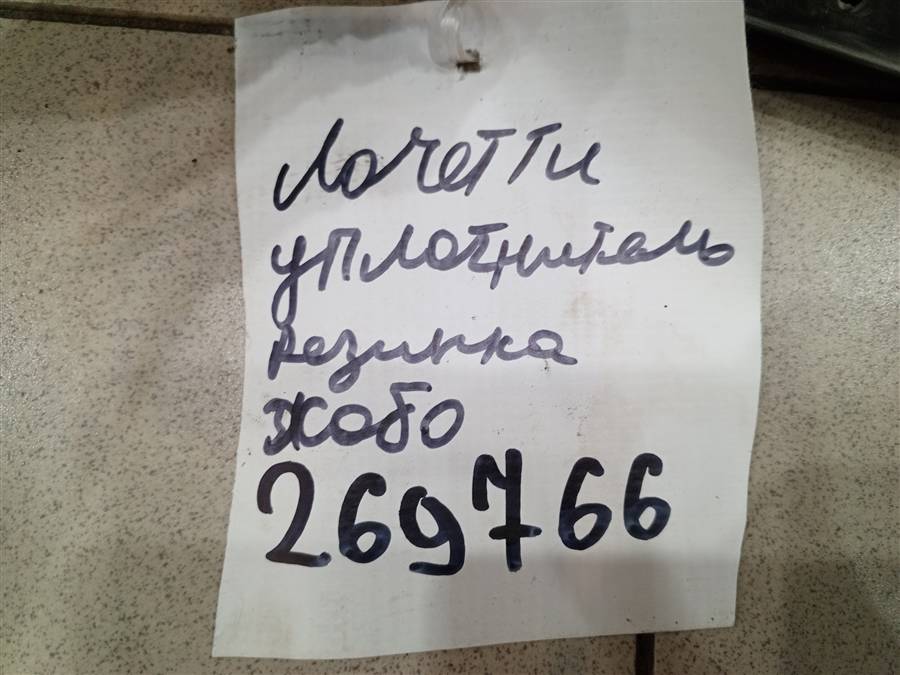 Лачетти
уплотнитель
резинка
жабо
269766